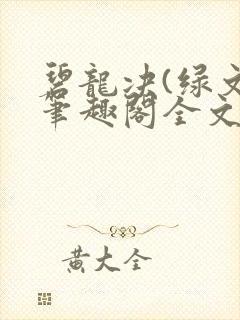 碧龍决(绿文
笔趣阁全文
黄大全